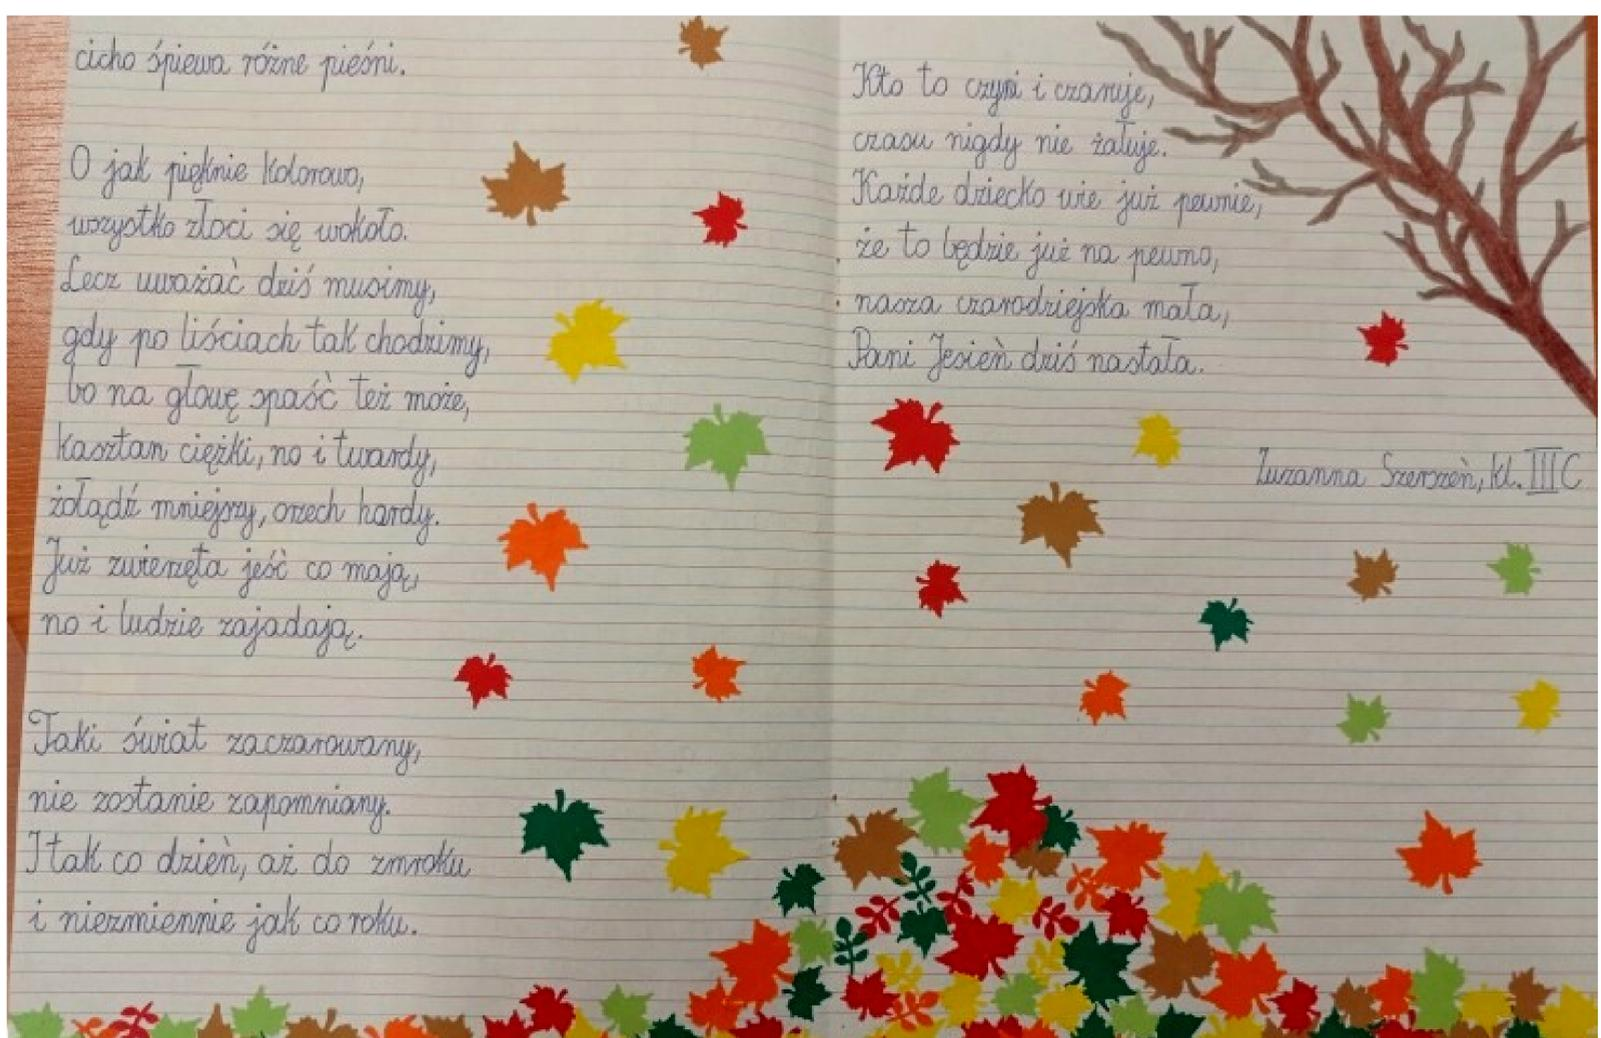 cicho śpiewa różne pieśni.
O jak pięknie kolorowo,
wszystko złoci się wokoło.
Lecz uważać dziś musimy,
gdy po liściach tak chodzimy,
bo na głowę spaść też może,
kasztan ciężki, no i twardy,
żołądź mniejszy, orzech hardy.
Już zwierzęta jeść co mają,
no i ludzie zajadają.
Taki świat zaczarowany,
nie zostanie zapomniany.
I tak co dzień, aż do zmroku
i niezmiennie jak co roku.
Kto to czyni i czaruje,
czasu nigdy nie żałuje.
Każde dziecko wie już pewnie,
że to będzie już na pewno,
nasza czarodziejska mała,
Pani Jesień dziś nastała.
Zuzanna Szerszeń, kl. III C